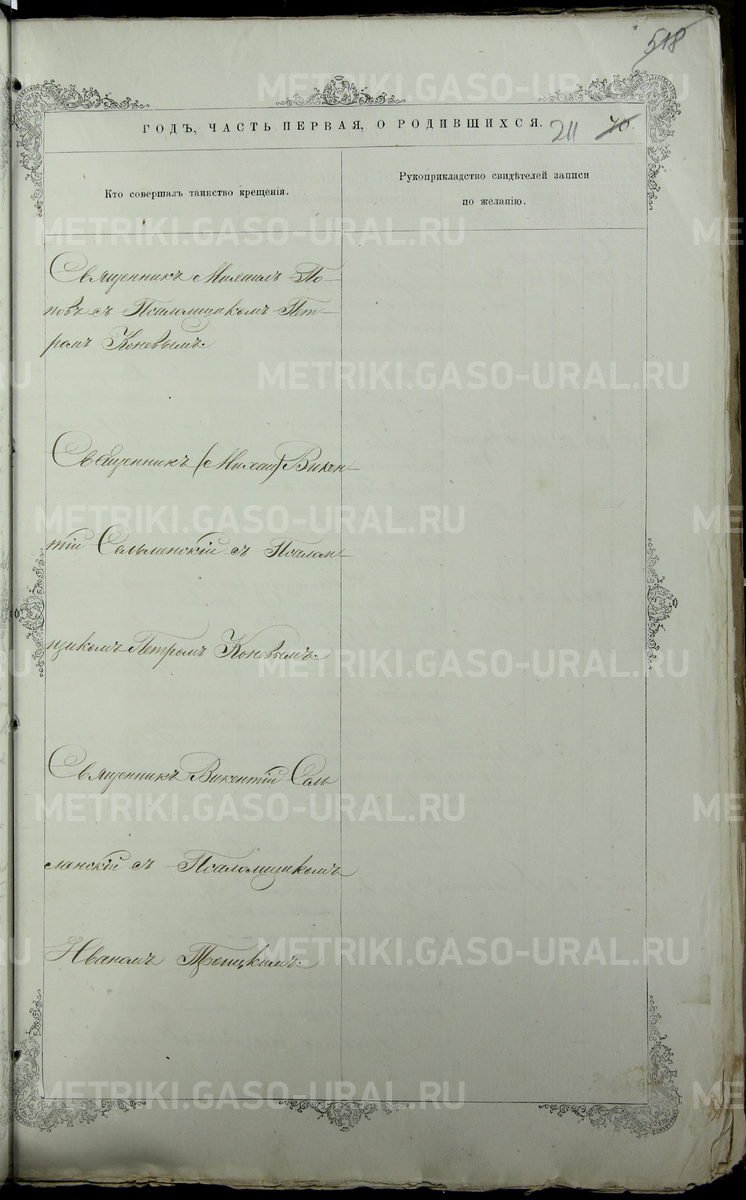 518
ГОДЪ, ЧАСТЬ ПЕРВАЯ, О РОДИВШИХСЯ. 211 70.
Кто совершалъ таинство крещенія.
Рукоприкладство свидѣтелей записи
по желанію.
Священникъ Михаилъ По-
повъ съ Псаломщикомъ Пет-
ромъ Коновымъ.
Священникъ (Михаи) Викен-
тій Сельменскій съ Псалом-
щикомъ Петромъ Коновымъ.
Священникъ Викентій Сель
менскій съ Псаломщикомъ
Иваномъ
METRIKI.GASO-URAL.RU